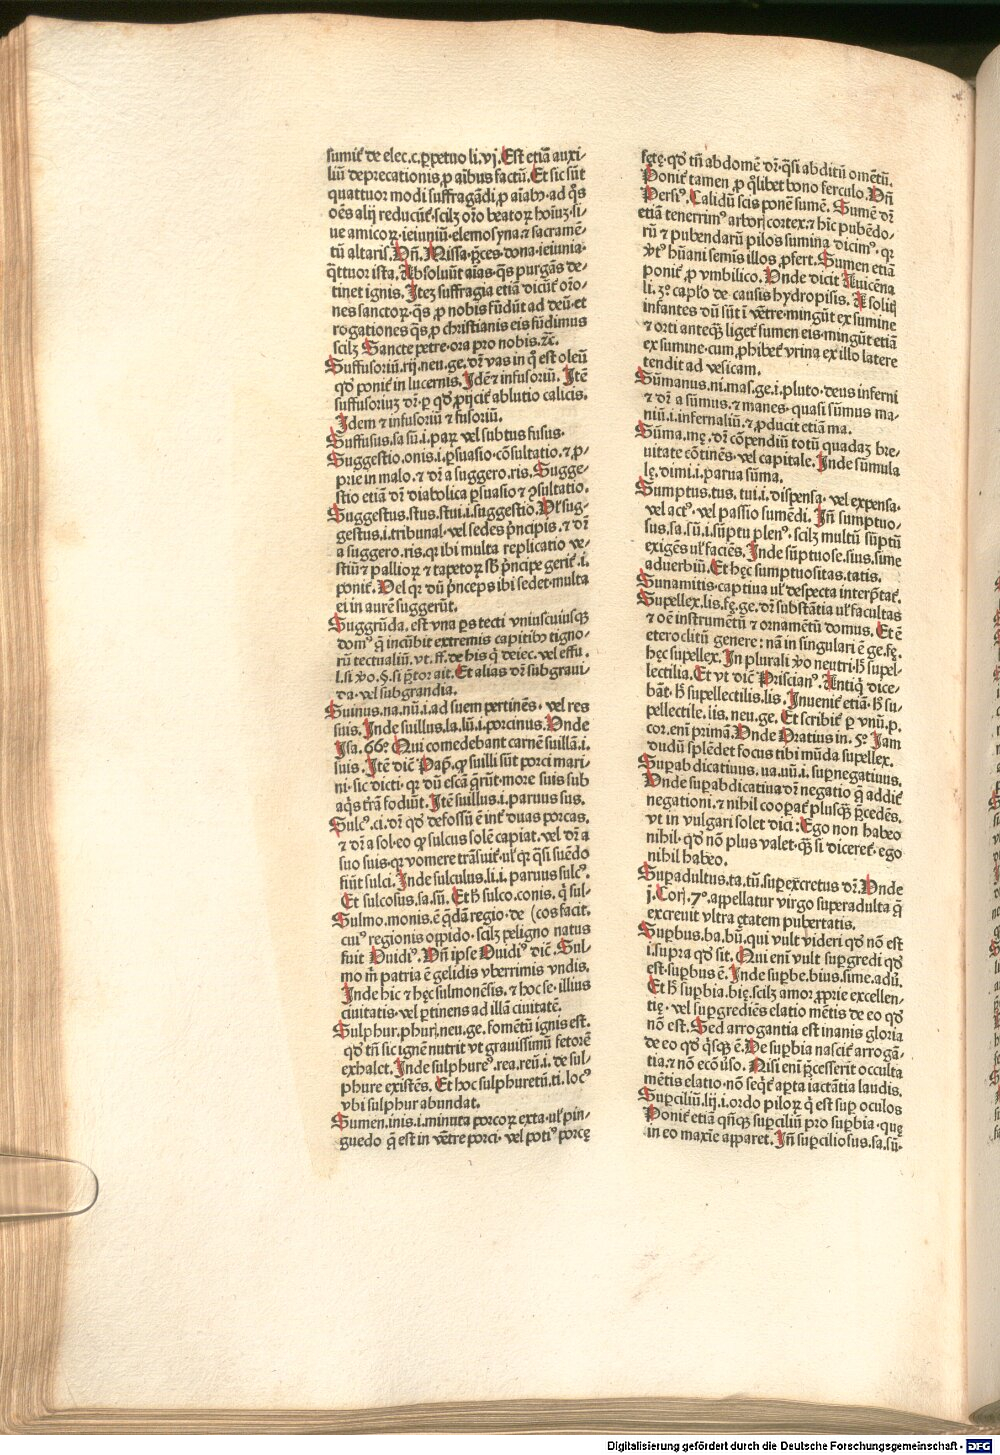 sumit̄ de elec.c.ꝑpetuo li.vj. Est etiā auxi-
liū deprecationis ꝓ aĩbus factū. Et sic sūt
quattuor modi suffragādi ꝓ aĩabꝰ ad q̄s
oēs alij reducūt̄ scilꝫ orõ beatoꝝ hoĩuꝫ si-
ue amicoꝝ ieiuniū elemosyna ⁊ sacramē-
tū altaris. Vñ. Missa p̄ces dona ieiunia
q̄ttuor ista. Absoluūt aĩas q̄s purgās de-
tinet ignis. Iteꝫ suffragia etiā dicūt̄ orõ-
nes sanctoꝝ q̄s ꝓ nobis fūdūt ad deū et
rogationes q̄s ꝓ christianis eis fūdimus
scilꝫ Sancte petre ora pro nobis. ⁊c̄.
Suffusoriū.rij.neu.ge.dr̄ vas in q̄ est oleū
qd̓ ponit̄ in lucernis. Idē ⁊ infusoriū. Itē
suffusoriuꝫ dr̄ ꝑ qd̓ ꝓijcit̄ ablutio calicis.
Idem ⁊ infusoriū ⁊ fusoriū.
Suffusus.sa sū.i.paꝝ vel subtus fusus.
Suggestio.onis.i.ꝑsuasio cōsultatio ⁊ ꝓ-
prie in malo. ⁊ dr̄ a suggero.ris. Sugge-
stio etiā dr̄ diabolica ꝑsuasio ⁊ ꝯsultatio.
Suggestus.stus.stui.i.suggestio. Ul̓ sug-
gestus.i.tribunal vel sedes p̄ncipis. ⁊ dr̄
a suggero.ris.qꝛ ibi multa replicatio ve-
stiū ⁊ pallioꝝ ⁊ tapetoꝝ sb̓ p̄ncipe gerit̄.i.
ponit̄. Vel qꝛ dū p̄nceps ibi sedet multa
ei in aurē suggerūt.
Suggrūda. est vna ꝑs tecti vniuscuiusqꝫ
domꝰ q̄ incūbit extremis capitibꝰ tigno-
rū tectualiū. vt. ff. de his q̄ deiec. vel effu.
l.si v̓o.§.si p̄tor ait. Et alias dr̄ subgraui-
da vel subgrandia.
Suinus.na.nū.i.ad suem pertinēs vel res
suis. Inde suillus.la.lū.i.porcinus. Vnde
Isa.66? Qui comedebant carnē suillā.i.
suis. Itē dic̄ Papꝭ. qꝙ suilli sūt porci mari-
ni sic dicti qꝛ dū escā q̄rūt more suis sub
aqs̄ t̓rā fodiūt. Itē suillus.i.paruus sus.
Sulcꝰ.ci.dr̄ qd̓ defossū ē int̓ duas porcas.
⁊ dr̄ a sol eo qꝙ sulcus solē capiat. vel dr̄ a
suo suis qꝛ vomere trāsuit̄ ul̓ qꝛ q̄si suēdo
fiūt sulci. Inde sulculus.li.i.paruus sulcꝰ.
Et sulcosus.sa.sū. Et h̓ sulco.conis. q̄ sul-
Sulmo.monis.ē q̄dā regio de (cos facit.
cuiꝰ regionis oppido scilꝫ peligno natus
fuit Ouidiꝰ. Vñ ipse Ouidiꝰ dic̄. Sul-
mo m̄ patria ē gelidis vberrimis vndis.
Inde hic ⁊ hęc sulmonēsis. ⁊ hoc se illius
ciuitatis vel ꝑtinens ad illā ciuitatē.
Sulphur.phuri.neu.ge.fomētū ignis est.
qd̓ tn̄ sic ignē nutrit vt grauissimū fetorē
exhalet. Inde sulphureꝰ.rea.reū.i.de sul-
phure existēs. Et hoc sulphuretū.ti.locꝰ
vbi sulphur abundat.
Sumen.inis.i.minuta porcoꝝ exta ul̓ pin-
guedo q̄ est in vētre porci vel potiꝰ porcę
fetę qd̓ tn̄ abdomē dr̄ q̄si abditū omētū.
Ponit̄ tamen ꝓ q̄libet bono ferculo. Vñ
Persiꝰ. Calidū scis ponē sumē. Sumē dr̄
etiā tenerrimꝰ arbori cortex. ⁊ hic pubēdo-
rū ⁊ pubendarū pilos sumina dicimꝰ. qꝛ
vtꝰ hūani semis illos ꝓfert. Sumen etiā
ponit̄ ꝓ vmbilico. Vnde dicit Auicēna
li.3? cap̓lo de causis hydropisis. A soliti
infantes dū sūt ī vētre mingūt ex sumine
⁊ orti anteq̄ꝫ liget̄ sumen eis mingūt etiā
ex sumine cum ꝓhibet̄ vrina ex illo latere
tendit ad vesicam.
Sūmanus.ni.mas.ge.i.pluto deus inferni
⁊ dr̄ a sūmus. ⁊ manes quasi sūmus ma-
niū.i.infernaliū. ⁊ ꝓducit etiā ma.
Sūma.mę. dr̄ cōpendiū totū quadaꝫ bre-
uitate cōtinēs vel capitale. Inde sūmula
lę.dimi.i.parua sūma.
Sumptus.tus.tui.i.dispensa vel expensa
vel actꝰ vel passio sumēdi. Iñ sumptuo-
sus.sa.sū.i.sūptu plenꝰ scilꝫ multū sūptū
exigēs ul̓ faciēs. Inde sūptuose.sius.sime
aduerbiū. Et hęc sumptuositas.tatis.
Sunamitis captiua ul̓ despecta interp̄tat̄.
Supellex.lis.fę.ge.dr̄ substātia ul̓ facultas
⁊ oē instrumētū ⁊ ornamētū domus. Et ē
eteroclitū genere : nā in singulari ē ge.fę.
hęc supellex. In plurali v̓o neutri h̓ supel-
lectilia. Et vt dic̄ Priscianꝰ. Antiq̄ dice-
bāt h̓ supellectilis.lis. Inuenit̄ etiā h̓ su-
pellectile.lis.neu.ge. Et scribit̄ ꝑ vnū.p.
cor.eni primā. Vnde Oratius in.5? Iam
dudū splēdet focus tibi mūda supellex.
Suꝑabdicatiuus.ua.uū.i.suꝑnegatiuus.
Vnde suꝑabdicatiua dr̄ negatio q̄ addit̄
negationi. ⁊ nihil cooꝑat̄ plusq̄ꝫ p̄cedēs.
vt in vulgari solet dici : Ego non habeo
nihil qd̓ nō plus valet q̄ꝫ si diceret̄ ego
nihil habeo.
Suꝑadultus.ta.tū.suꝑexcretus dr̄. Vnde
j.Cori.7? appellatur virgo superadulta q̄
excreuit vltra ętatem pubertatis.
Suꝑbus.ba.bū.qui vult videri qd̓ nō est
i.supra qd̓ sit. Qui enī vult suꝑgredi qd̓
est suꝑbus ē. Inde suꝑbe.bius.sime.adū.
Et h̓ suꝑbia.bię.scilꝫ amor ꝓprie excellen-
tię vel suꝑgrediēs elatio mētis de eo qd̓
nō est. Sed arrogantia est inanis gloria
de eo qd̓ q̄sqꝫ ē. De suꝑbia nascit̄ arrogā-
tia. ⁊ nō ecōu̓so. Nisi enī p̄cesserit occulta
mētis elatio nō seq̄t̄ aꝑta iactātia laudis.
Suꝑciliū.lij.i.ordo piloꝝ q̄ est suꝑ oculos
Ponit̄ etiā qn̄qꝫ suꝑciliū pro suꝑbia quę
in eo maxīe apparet. Iñ suꝑciliosus.sa.sū.
Digitalisierung gefördert durch die Deutsche Forschungsgemeinschaft - DFG